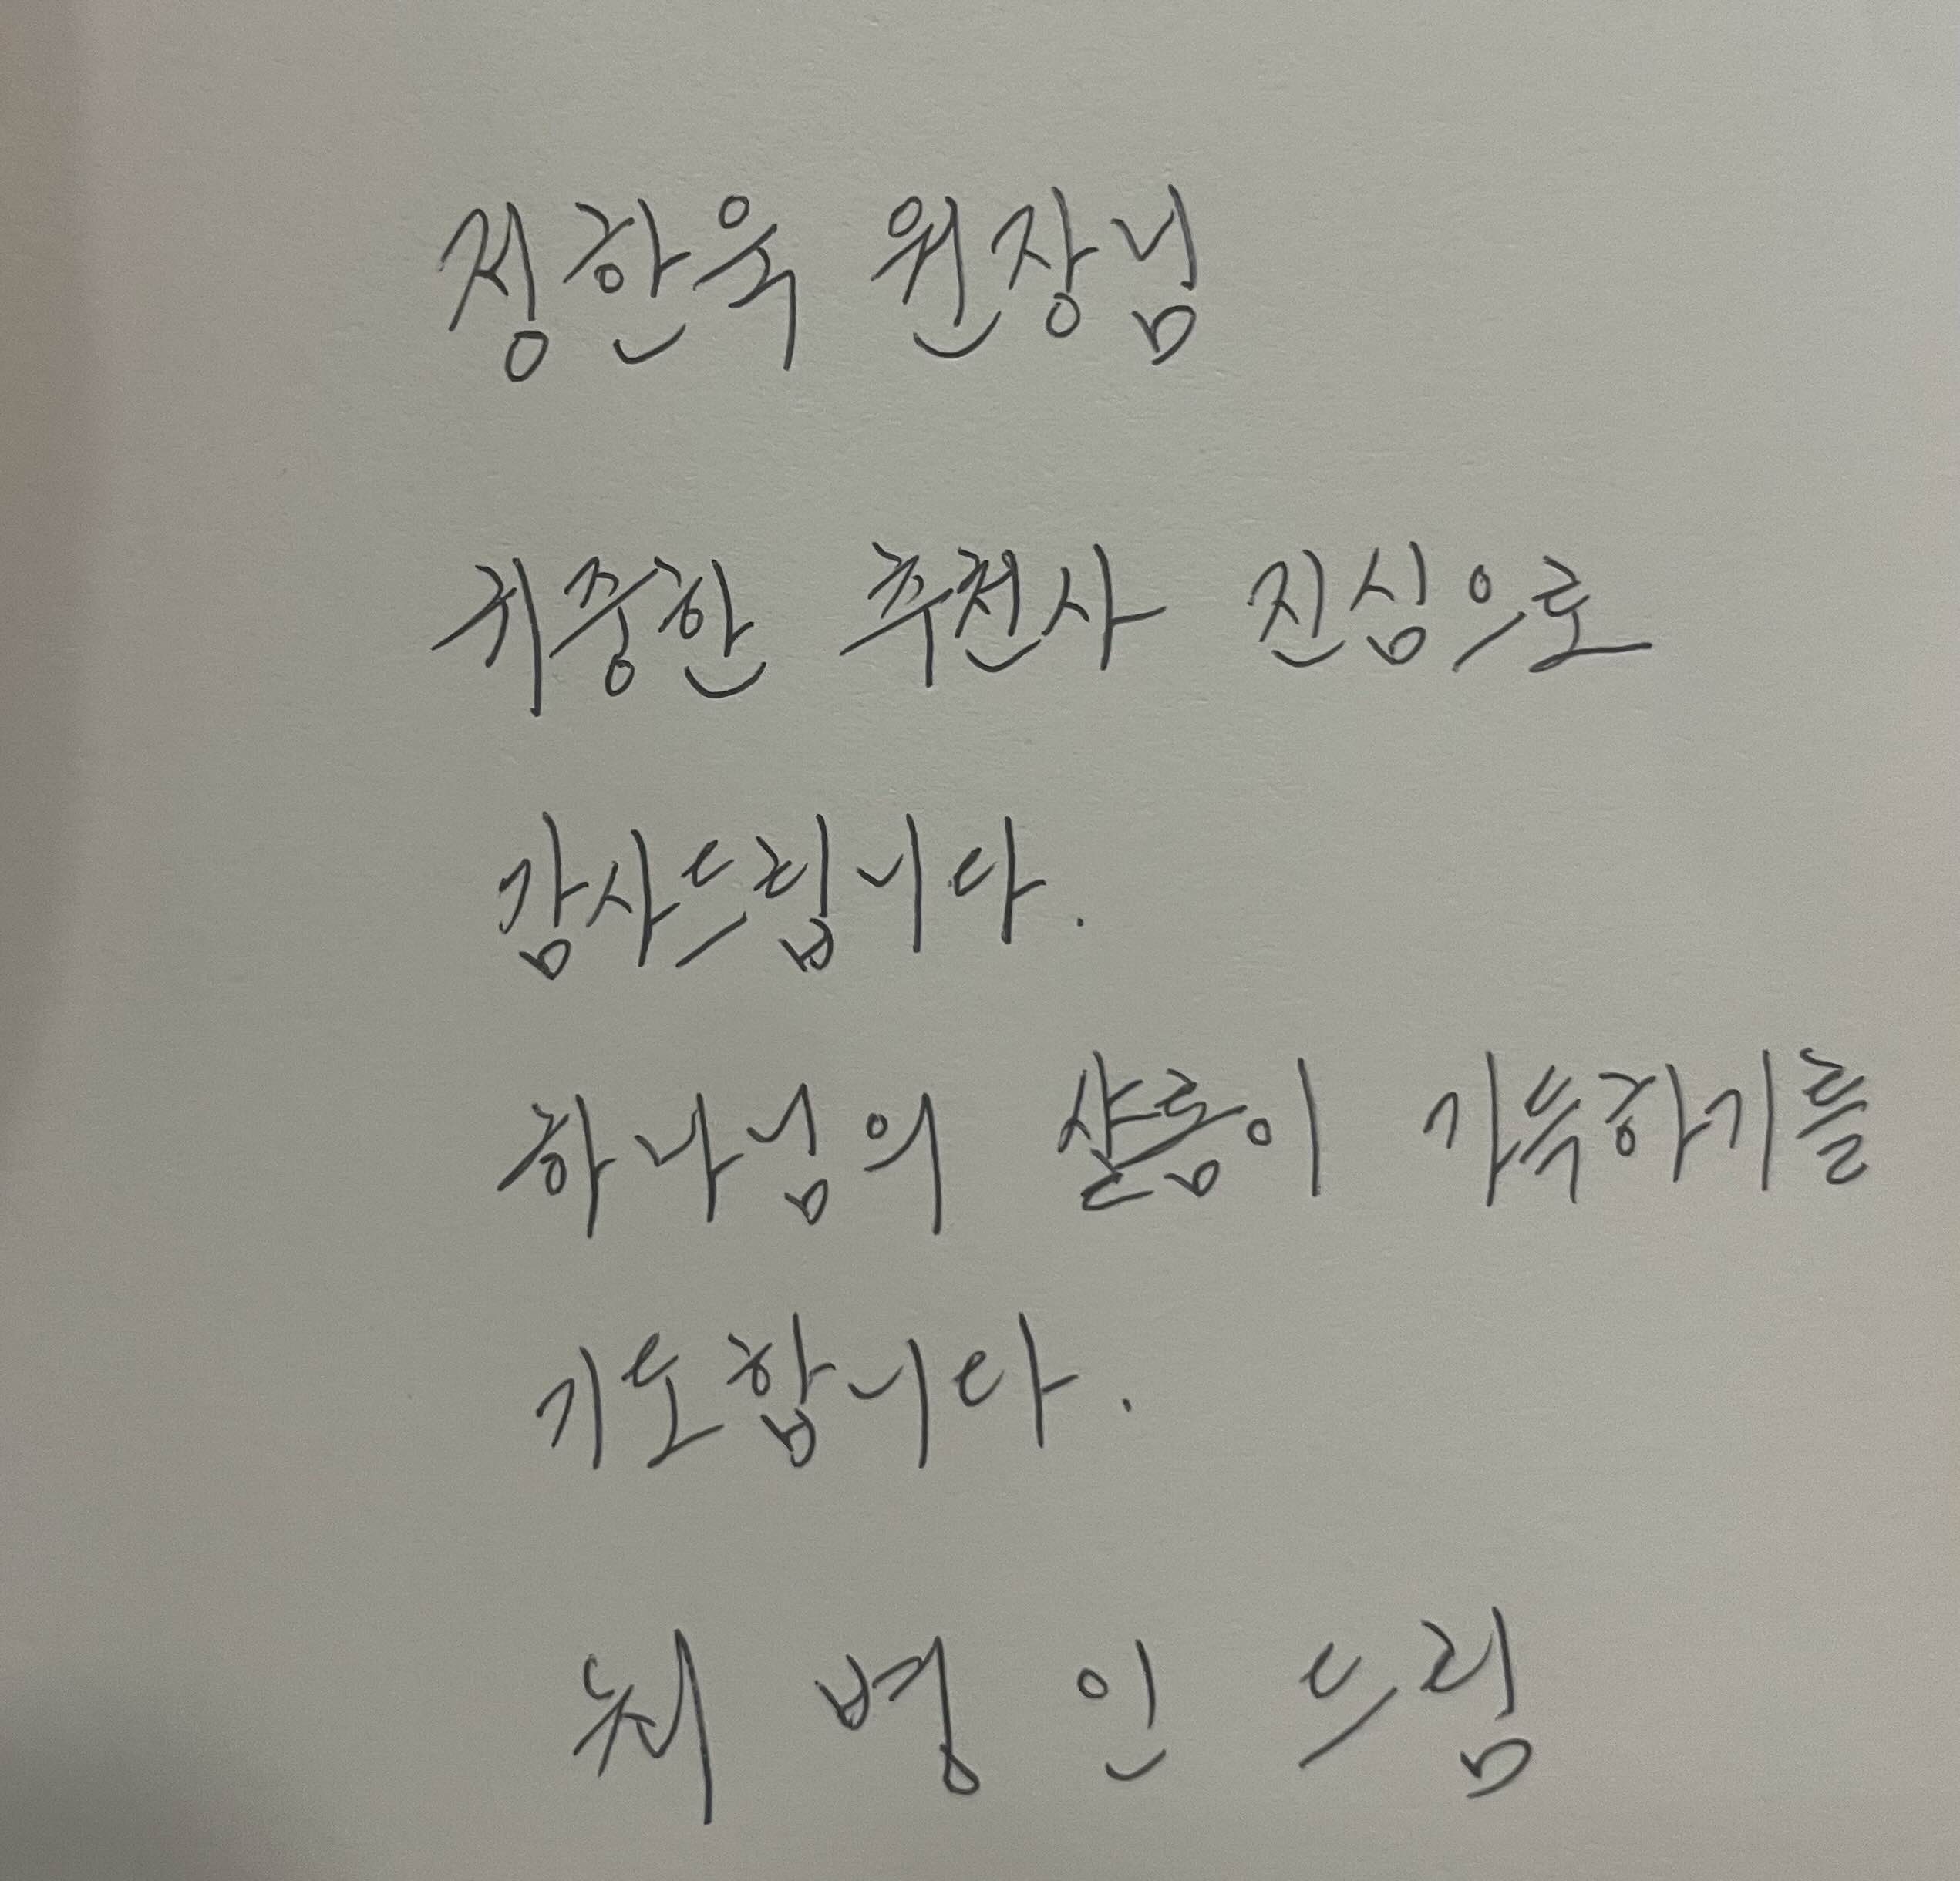 정한욱 원장님
귀중한 추천사 진심으로
감사드립니다.
하나님의 샬롬이 가득하기를
기도합니다.
채병인 드림